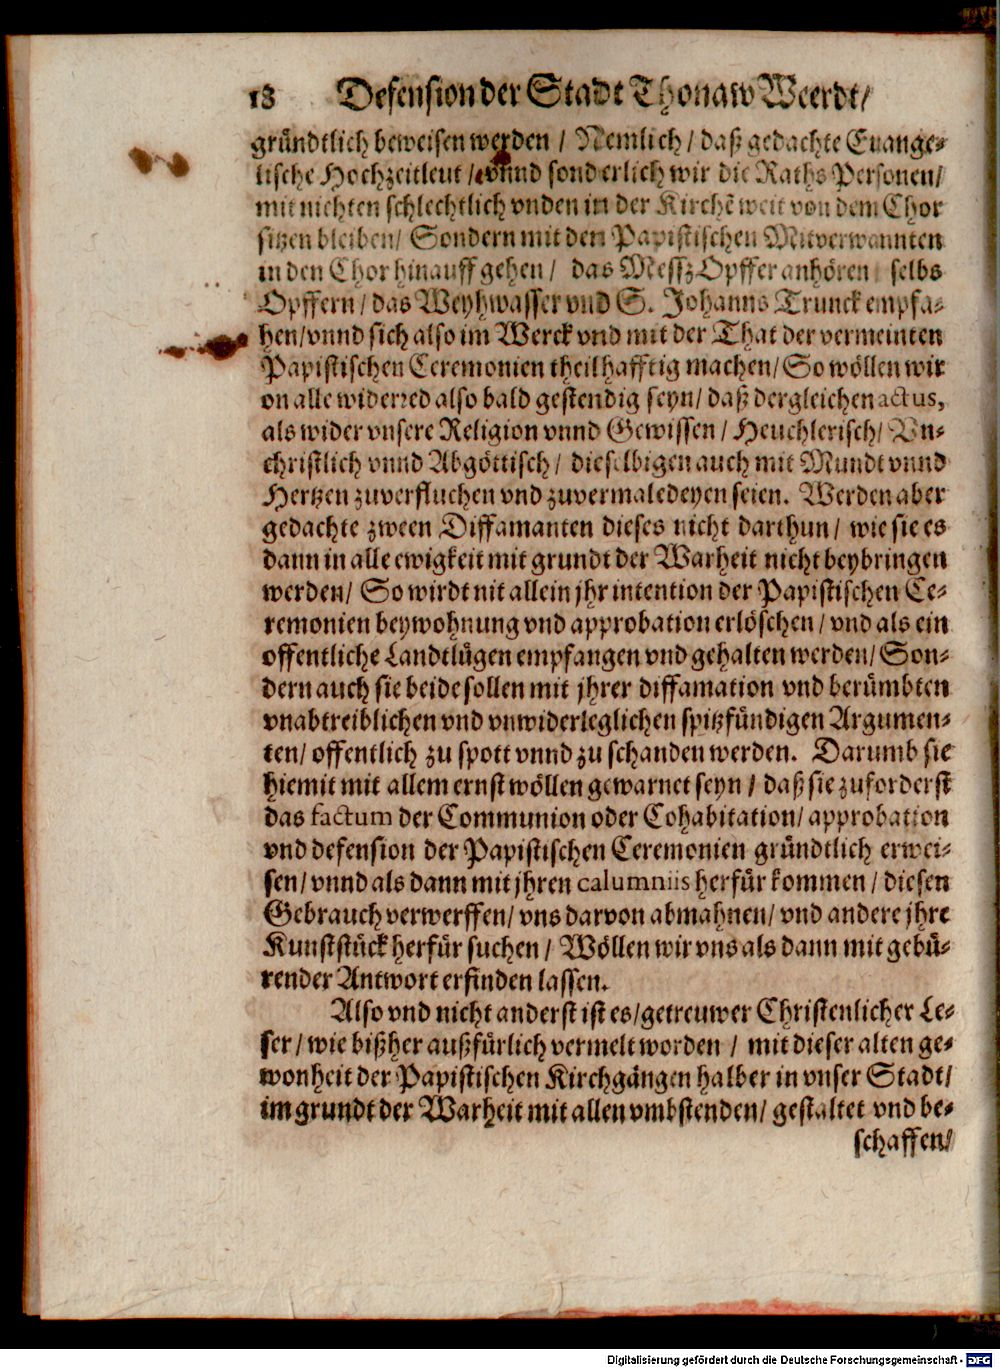 18 Defension der Stadt Thonaw Weerdt/
gründtlich beweisen werden / Nemlich / daß gedachte Euange-
lische Hochzeitleut / vnnd sonderlich wir die Raths Personen/
mit nichten schlechtlich vnden in der Kirchẽ weit von dem Chor
sitzen bleiben/ Sondern mit den Papistischen Mitverwannten
in den Chor hinauff gehen / das Messz Opffer anhören selbs
Opffern / das Weyhwasser vnd S. Johanns Trunck empfa-
hen/vnnd sich also im Werck vnd mit der That der vermeinten
Papistischen Ceremonien theilhafftig machen/ So wöllen wir
on alle widerred also bald gestendig seyn/ daß dergleichen actus,
als wider vnsere Religion vnnd Gewissen / Heuchlerisch/ Vn-
christlich vnnd Abgöttisch / dieselbigen auch mit Mundt vnnd
Hertzen zuverfluchen vnd zuvermaledeyen seien. Werden aber
gedachte zween Diffamanten dieses nicht darthun / wie sie es
dann in alle ewigkeit mit grundt der Warheit nicht beybringen
werden/ So wirdt nit allein jhr intention der Papistischen Ce-
remonien beywohnung vnd approbation erlöschen / vnd als ein
offentliche Landtlügen empfangen vnd gehalten werden/ Son-
dern auch sie beide sollen mit jhrer diffamation vnd berümbten
vnabtreiblichen vnd vnwiderleglichen spitzfündigen Argumen-
ten/ offentlich zu spott vnnd zu schanden werden. Darumb sie
hiemit mit allem ernst wöllen gewarnet seyn / daß sie zuforderst
das factum der Communion oder Cohabitation/ approbation
vnd defension der Papistischen Ceremonien gründtlich erwei-
sen/ vnnd als dann mit jhren calumniis herfür kommen / diesen
Gebrauch verwerffen/ vns darvon abmahnen/ vnd andere jhre
Kunststück herfür suchen / Wöllen wir vns als dann mit gebü-
render Antwort erfinden lassen.
Also vnd nicht anderst ist es/getreuwer Christenlicher Le-
ser / wie bißher außfürlich vermelt worden / mit dieser alten ge-
wonheit der Papistischen Kirchgängen halber in vnser Stadt/
im grundt der Warheit mit allen vmbstenden/ gestaltet vnd be-
schaffen/
Digitalisierung gefördert durch die Deutsche Forschungsgemeinschaft - DFG